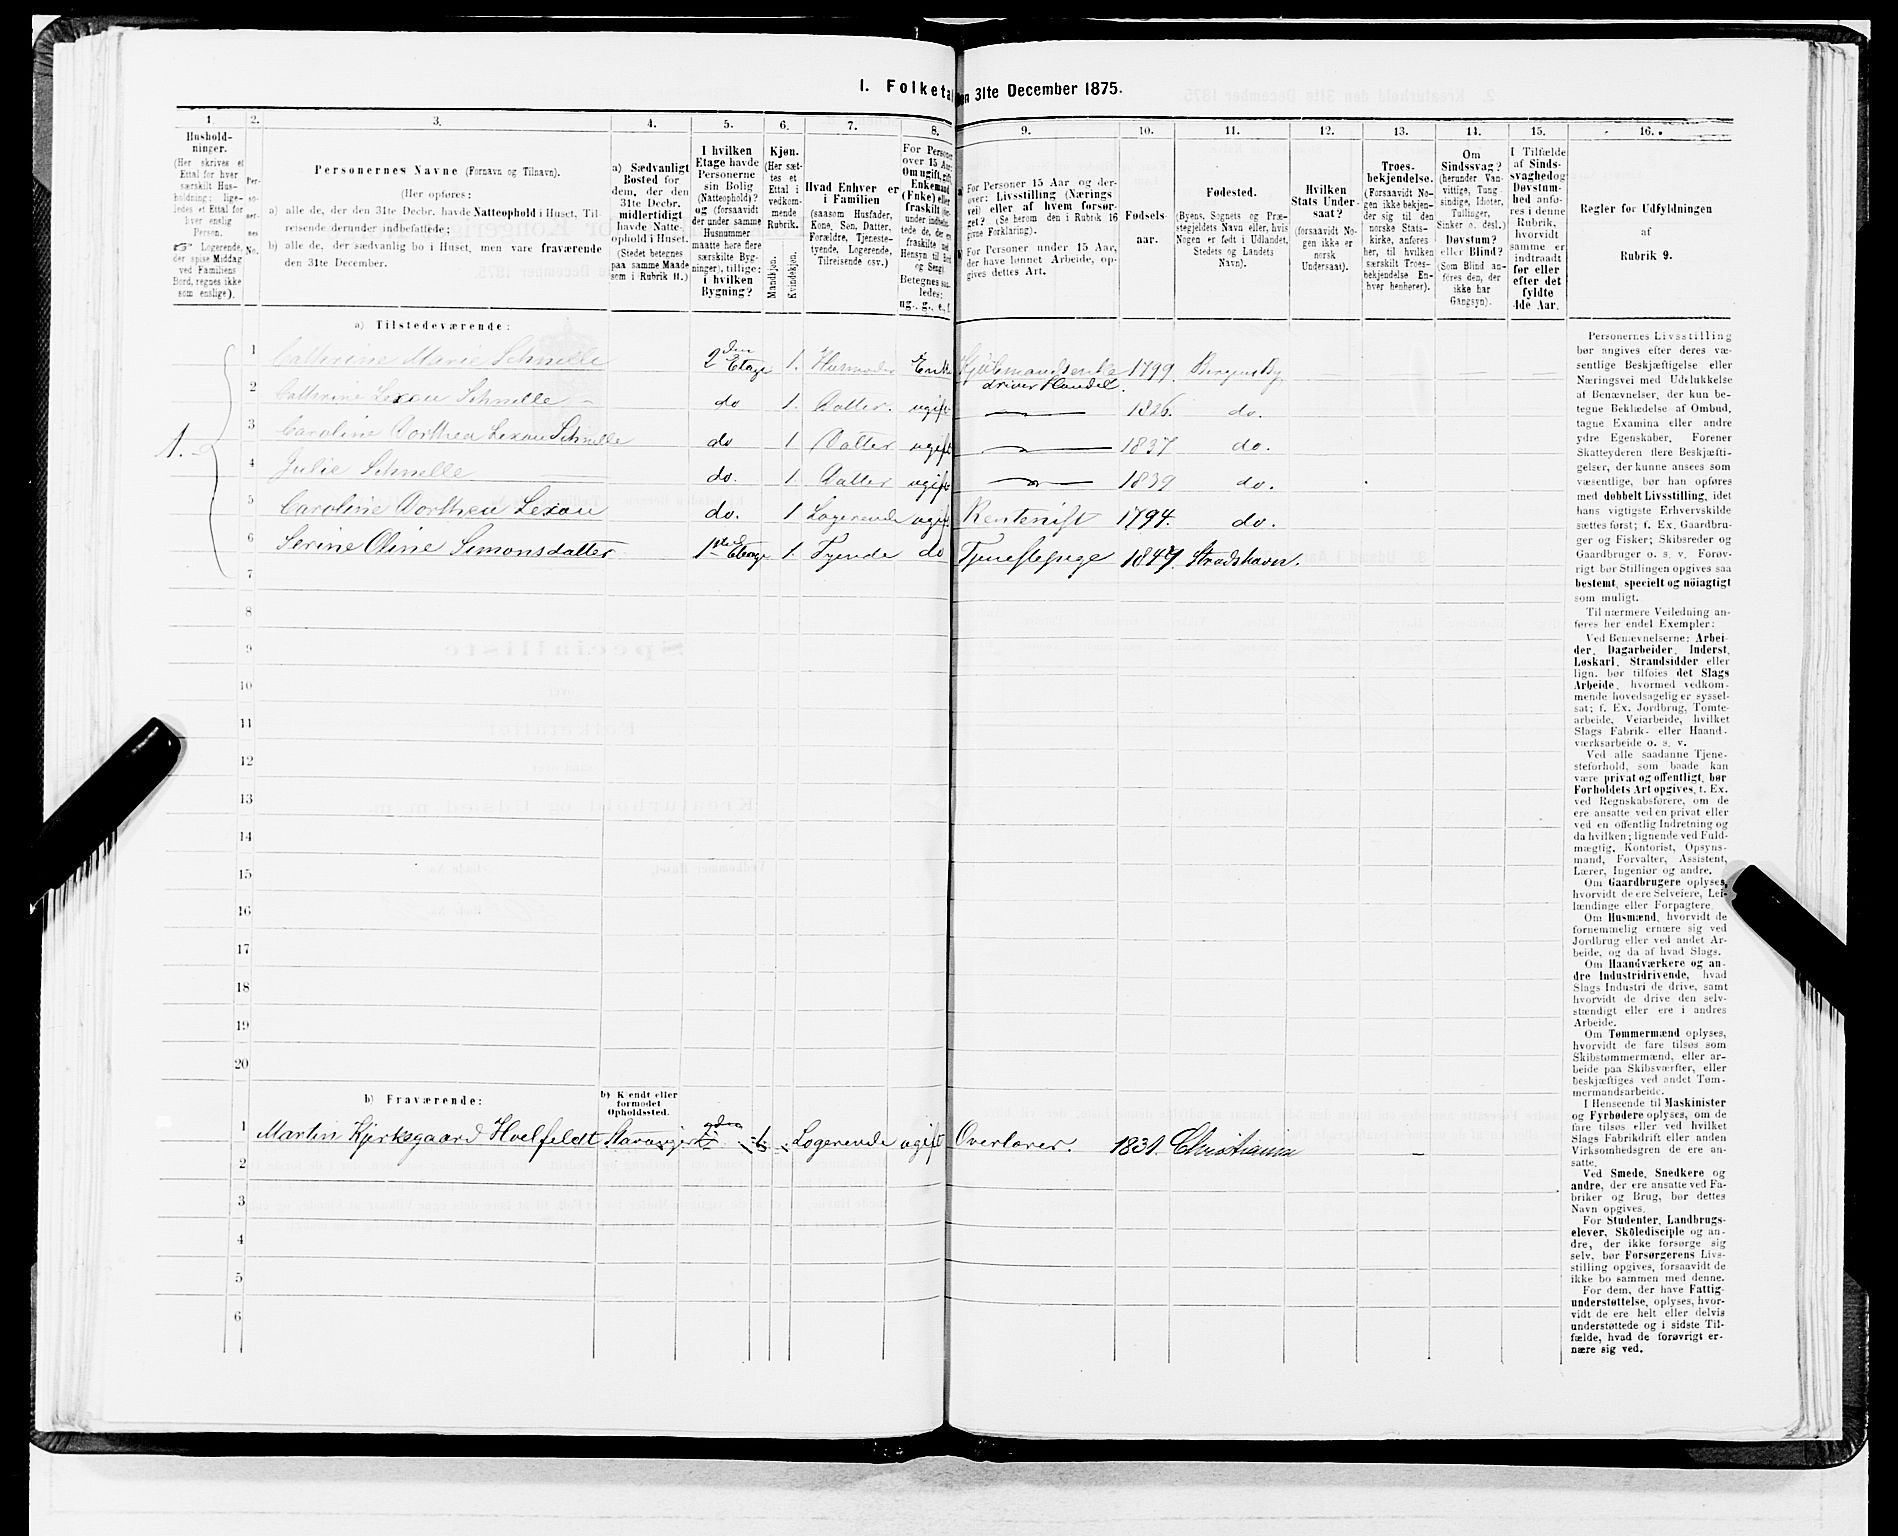 I. Folketal den 31te December 1875.
1.
Hushold-
ninger.
(Her skrives et
Ettal for hver
særskilt Hus-
holdning; lige-
ledes et Ettal for
hver enslig
Person.
Logerende,
der spise Middag
ved Familiens
Bord, regnes ikke
som enslige).
2.
Per-
so-
ner-
nes
No.
3.
Personernes Navne (Fornavn og Tilnavn).
(Her opføres:
a) alle de, der den 31te Decbr. havde Natteophold i Huset, Til-
reisende derunder indbefattede;
b) alle de, der sædvanlig bo i Huset, men vare fraværende
den 31te December.
4.
a) Sædvanligt
Bosted for
dem, der den
31te Decbr.
midlertidigt
havde Natte-
ophold i Huset.
(Stedet betegnes
paa samme Maade
som i Rubrik 11.)
5.
I hvilken
Etage havde
Personerne
sin Bolig
(Natteophold)?
og (forsaavidt
der under samme
Husnummer
maatte høre flere
særskilte Byg-
ninger), tillige:
i hvilken
Bygning?
6.
Kjøn.
(Her sæt-
tes et
Ettal i
vedkom-
mende
Rubrik.)
Mandkjøn.
Kvindekjøn.
7.
Hvad Enhver er
i Familien
(saasom Husfader,
Kone, Søn, Datter,
Forældre, Tjeneste-
tyende, Logerende,
Tilreisende osv.)
8.
For Personer
over 15 Aar:
Om ugift, gift,
Enkemand
(Enke) eller
fraskilt
Betegnes saa-
ledes:
ug., g., e., f.
9.
For Personer 15 Aar og der-
over: Livsstilling (Nærings-
vei) eller af hvem forsør-
get? (Se herom den i Rubrik 16
givne Forklaring).
For Personer under 15 Aar,
der have lønnet Arbeide, op-
gives dettes Art.
10.
Fødsels-
aar.
11.
Fødested.
(Byens, Sognets og Præ-
stegjeldets Navn eller, hvis
Nogen er født i Udlandet,
Stedets og Landets
Navn).
12.
Hvilken
Stats Under-
saat?
(forsaavidt No-
gen ikke er
norsk
Undersaat).
13.
Troes-
bekjendelse.
(Forsaavidt No-
gen ikke bekjen-
der sig til den
norske Stats-
kirke, anføres
her, til hvilken
særskilt Troes-
bekjendelse En-
hver henhører).
14.
Om
Sindssvag?
(herunder Van-
vittige, Tung-
sindige, Idioter,
Tullinger,
Sinker o. desl.)
Døvstum?
eller Blind?
(Som Blind an-
føres den, der
ikke har
Gangsyn).
15.
I Tilfælde
af Sinds-
svaghed og
Døvstum-
hed anfø-
res i denne
Rubrik,
hvorvidt
samme er
indtraadt
før eller
efter det
fyldte
4de Aar.
16.
Regler før Udfyldningen
af
Rubrik 9.
a) Tilstedeværende:
1.
1 Cathrine Marie Schnelle 2den Etage 1. Husmoder Enke Kjøbmandsenke driver Handel. 1799. Bergens By
2 Cathrine Lexau Schnelle do 1. Datter. ugift 1826. do.
3 Caroline Dorthea Lexau Schnelle do 1 Datter ugift 1837 do.
4 Julie Schnelle do. 1 Datter ugift 1839 do.
5 Caroline Dorthea Lexau do. 1 Logerende ugift. Rentenist 1794. do.
6 Serine Oline Simonsdatter 1ste Etage 1. Tyende do Tjenestepige 1847. Stradshavn.
7
8
9
10
11
12
13
14
15
16
17
18
19
20
b) Fraværende:
b) Kjendt eller
formodet
Opholdssted.
1 Martin Kjerksgaard Hvelfeldt Stavanger 1. Logerende ugift Overlærer. 1831. Christiania
2
3
4
5
6
Personernes Livsstilling
bør angives efter deres væ-
sentlige Beskjæftigelse eller
Næringsvei med Udelukkelse
af Benævnelser, der kun be-
tegne Beklædelse af Ombud,
tagne Examina eller andre
ydre Egenskaber. Forener
Skatteyderen flere Beskjæfti-
gelser, der kunne ansees som
væsentlige, bør han opføres
med dobbelt Livsstilling, idet
hans vigtigste Erhvervskilde
sættes først; f. Ex. Gaardbru-
ger og Fisker; Skibsreder og
Gaardbruger o. s. v. Forøv-
rigt bør Stillingen opgives saa
bestemt, specielt og nöiagtigt
som muligt.
Til nærmere Veiledning an-
føres her endel Exempler:
Ved Benævnelserne: Arbei-
der, Dagarbeider, Inderst,
Løskarl, Strandsidder eller
lign. bør tilføies det Slags
Arbeide, hvormed vedkom-
mende hovedsagelig er syssel-
sat; f. Ex. Jordbrug, Tomte-
arbeide, Veiarbeide, hvilket
Slags Fabrik- eller Haand-
værksarbeide o. s. v.
Ved alle saadanne Tjene-
steforhold, som baade kan
være privat og offentligt, bør
Forholdets Art opgives, t. Ex.
ved Regnskabsførere, om de
ere ansatte ved en privat eller
ved en offentlig Indretning og
da hvilken; lignende ved Fuld-
mægtig, Kontorist, Opsyns-
mand, Forvalter, Assistent,
Lærer, Ingeniør og andre.
Om Gaardbrugere oplyses,
hvorvidt de ere Selveiere, Lei-
lændinge eller Forpagtere.
Om Husmænd, hvorvidt de
fornemmelig ernære sig ved
Jordbrug eller ved andet Ar-
beide, og da af hvad Slags.
Om Haandværkere og an-
dre Industridrivende, hvad
Slags Industri de drive, samt
hvorvidt de drive den selv-
stændigt eller ere i andres
Arbeide.
Om Tømmermænd oplyses,
hvorvidt de fare tilsøs som
Skibstømmermænd, eller ar-
beide paa Skibsværfter, eller
beskjæftiges ved andet Tøm-
mermandsarbeide.
I Henseende til Maskinister
og Fyrbødere oplyses, om de
fare tilsøs eller ved hvilket
Slags Fabrikdrift eller anden
Virksomhedsgren de ere an-
satte.
Ved Smede, Snedkere og
andre, der ere ansatte ved Fa-
briker og Brug, bør dettes
Navn opgives.
For Studenter, Landbrugs-
elever, Skôledisciple og an-
dre, der ikke forsørge sig
selv, bør Forsørgerens Livs-
stilling opgives, forsaavidt de
ikke bo sammen med denne.
For dem, der have Fattig-
understøttelse, oplyses, hvor-
vidt de ere helt eller delvis
understøttede og i sidste Til-
fælde, hvad de forøvrigt er-
nære sig ved.